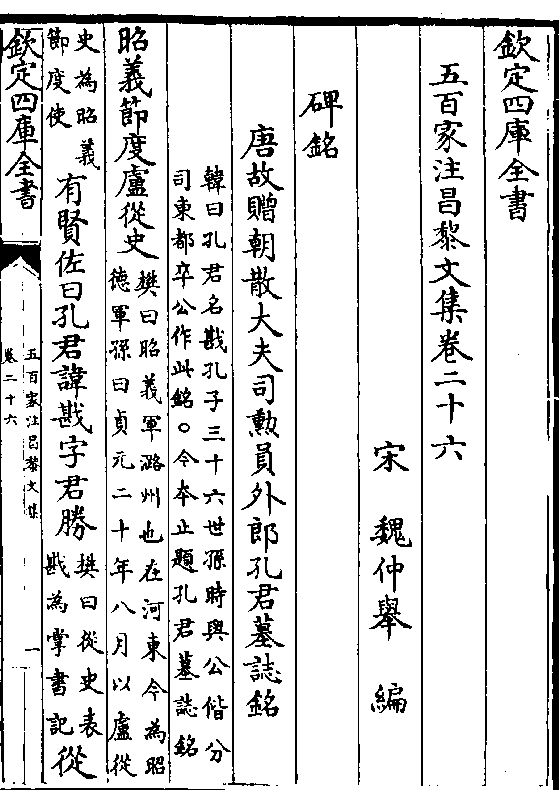 欽定四庫全書
五百家注昌黎文集卷二十六
宋 魏仲舉 編
碑銘
唐故贈朝散大夫司勲員外郎孔君墓誌銘
韓曰孔君名戡孔子三十六世孫時與公偕分
司東都卒公作此銘○今本止題孔君墓誌銘
昭義節度盧從史
樊曰昭義軍潞州也在河東今為昭
德軍孫曰貞元二十年八月以盧從
史為昭義
節度使
有賢佐曰孔君諱戡字君勝
樊曰從史表
戡為掌書記
從
欽定四庫全書
五百家注昌黎文集
卷二十六
一